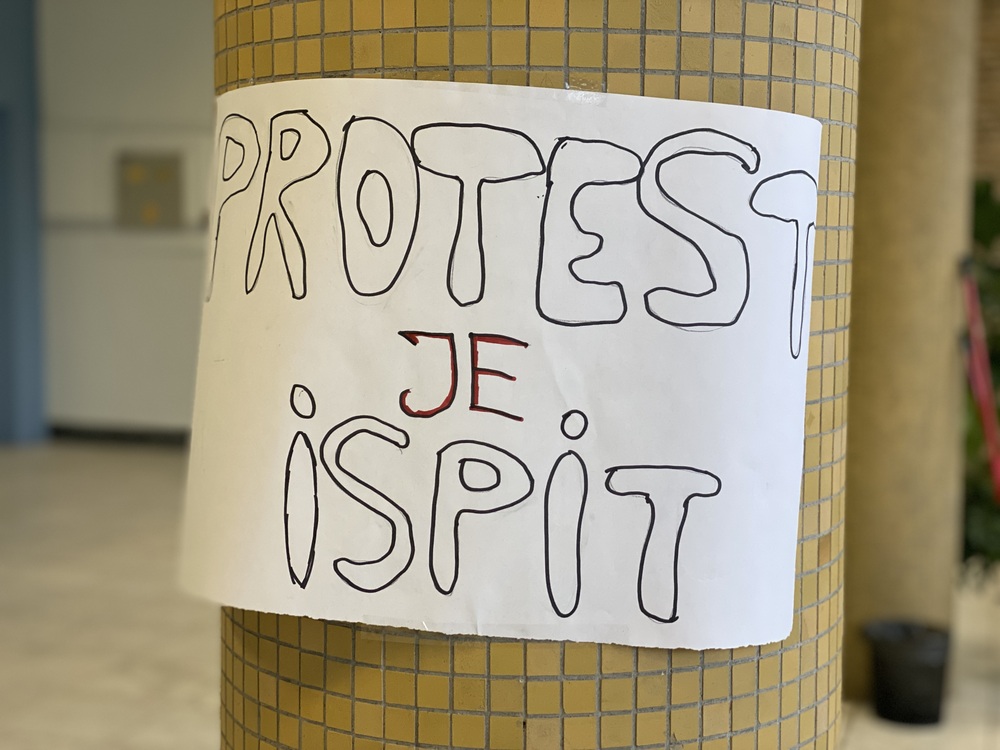 PROTEST
JE
iSPiT